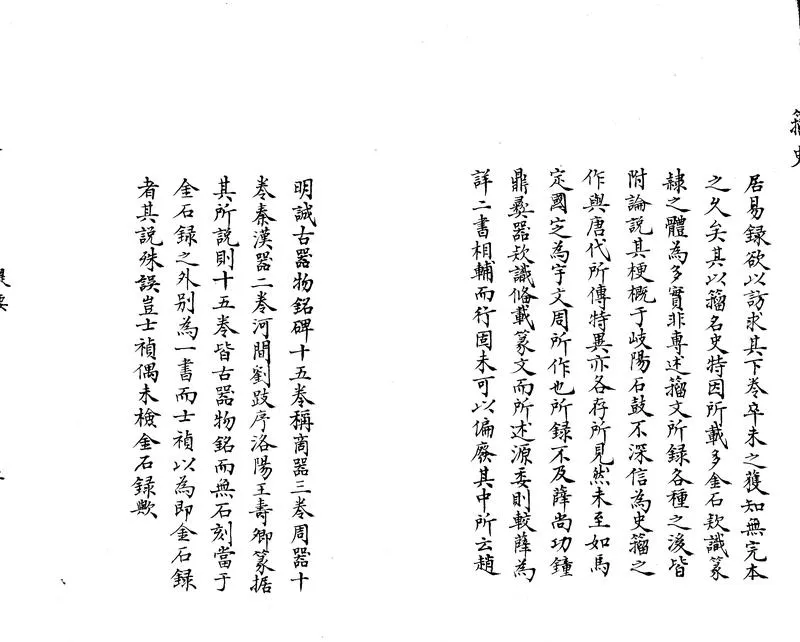 籀史
居易録欲以訪求其下卷卒未之獲知無完本
之久矣其以籀名史特因所載多金石欵識篆
隸之體為多實非専述籀文所録各種之後皆
附論説其梗概于岐陽石鼓不深信為史籀之
作與唐代所傳特異亦各存所見然未至如馬
定國定為宇文周所作也所録不及薛尚功鐘
鼎彞器欵識備載篆文而所述源委則較薛為
詳二書相輔而行固未可以偏廢其中所云趙
明誠古器物銘碑十五卷稱商器三卷周器十
卷秦漢器二卷河間劉跂序洛陽王壽卿篆据
其所説則十五卷皆古器物銘而無石刻當于
金石録之外别為一書而士禎以為即金石録
者其説殊誤豈士禎偶未檢金石録歟
提要